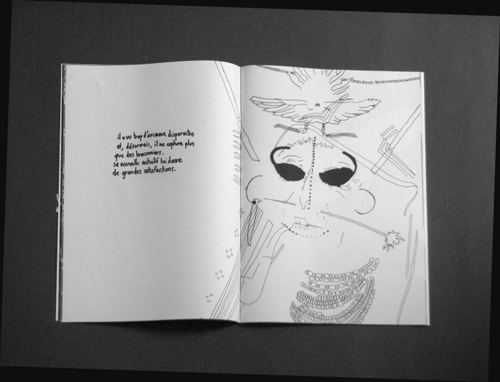 il a vu trop d'animaux disparaître
et, désormais, il ne capture plus
que des braconniers.
sa nouvelle activité lui donne
de grandes satisfactions.